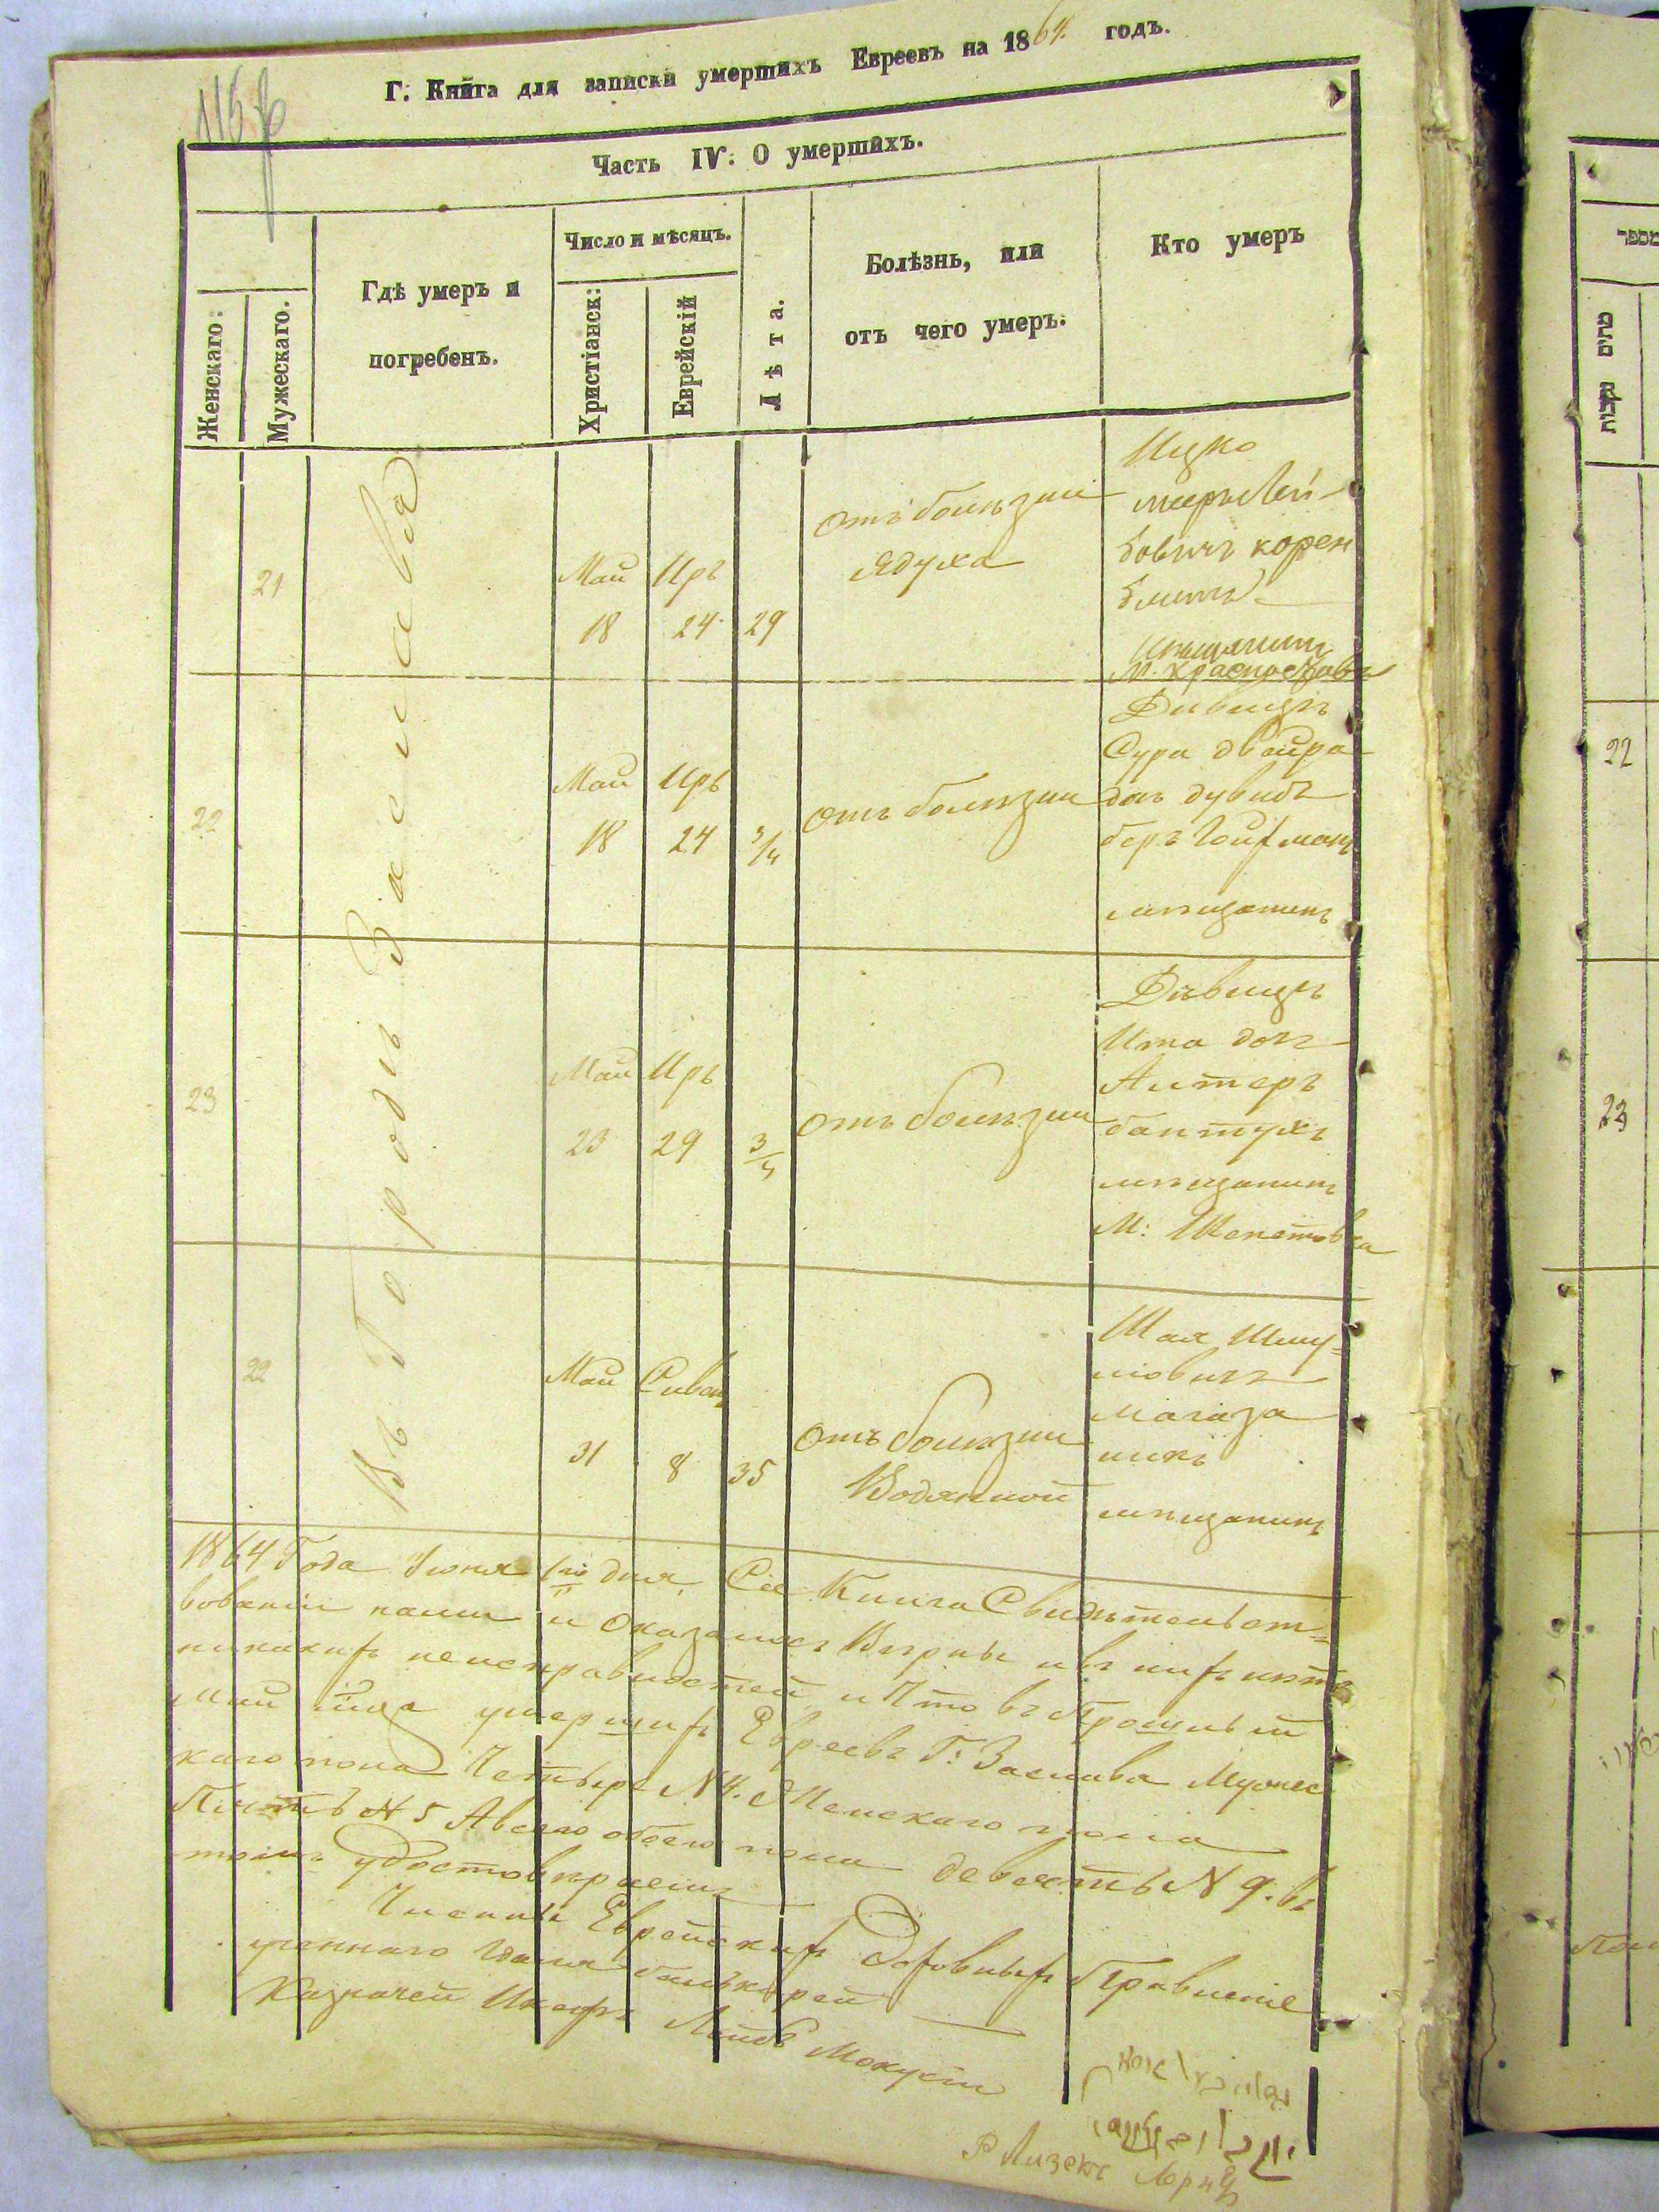 115
Г. Книга для записки умершихъ Евреевъ на 1864. годъ.
Часть IV. О умершихъ.
Женскаго:
Мужескаго.
Гдѣ умеръ и
погребенъ.
Число и мѣсяцъ.
Христіанск:
Еврейскій
Лѣта.
Болѣзнь, или
отъ чего умеръ:
Кто умеръ
Въ Городѣ Заславѣ
21
Май
18
Иръ
24
29
отъ болѣзни
ядуха
Ицко
меръ Лей-
бовичъ корен
блитъ
мѣщанинъ
М. Красностав
22
Май
18
Иръ
24
3/4
отъ болѣзни
Дѣвица
Сура двойра
дочь дувидъ
беръ Гойфман
мѣщанинъ
23
Май
23
Иръ
29
3/4
отъ болѣзни
Дѣвица
Ита дочь
Алтеръ
бантухъ
мѣщанинъ
М: Шепетовка
22
Май
31
Сиван
8
35
отъ болѣзни
Водянной
Шая Шму-
лiовичъ
магаза
никъ
мѣщанинъ
1864 Года Іюня 1го дня Сіе Книга Свидѣтельст=
вованіи нами и оказалось Вѣрны и въ нихъ нѣтъ
никакихъ неисправностей и Что въ Прошлый
Май мца умершихъ Евреевъ Г: Заслава Мужес
каго пола Четыре N 4. Женскаго пола
Пять N 5 А всего обоего пола девять N 9. въ
томъ удостовѣряемъ
Члены Еврейскихъ Духовныхъ Правленіе
Казначей Лейбъ
מספר
22
23